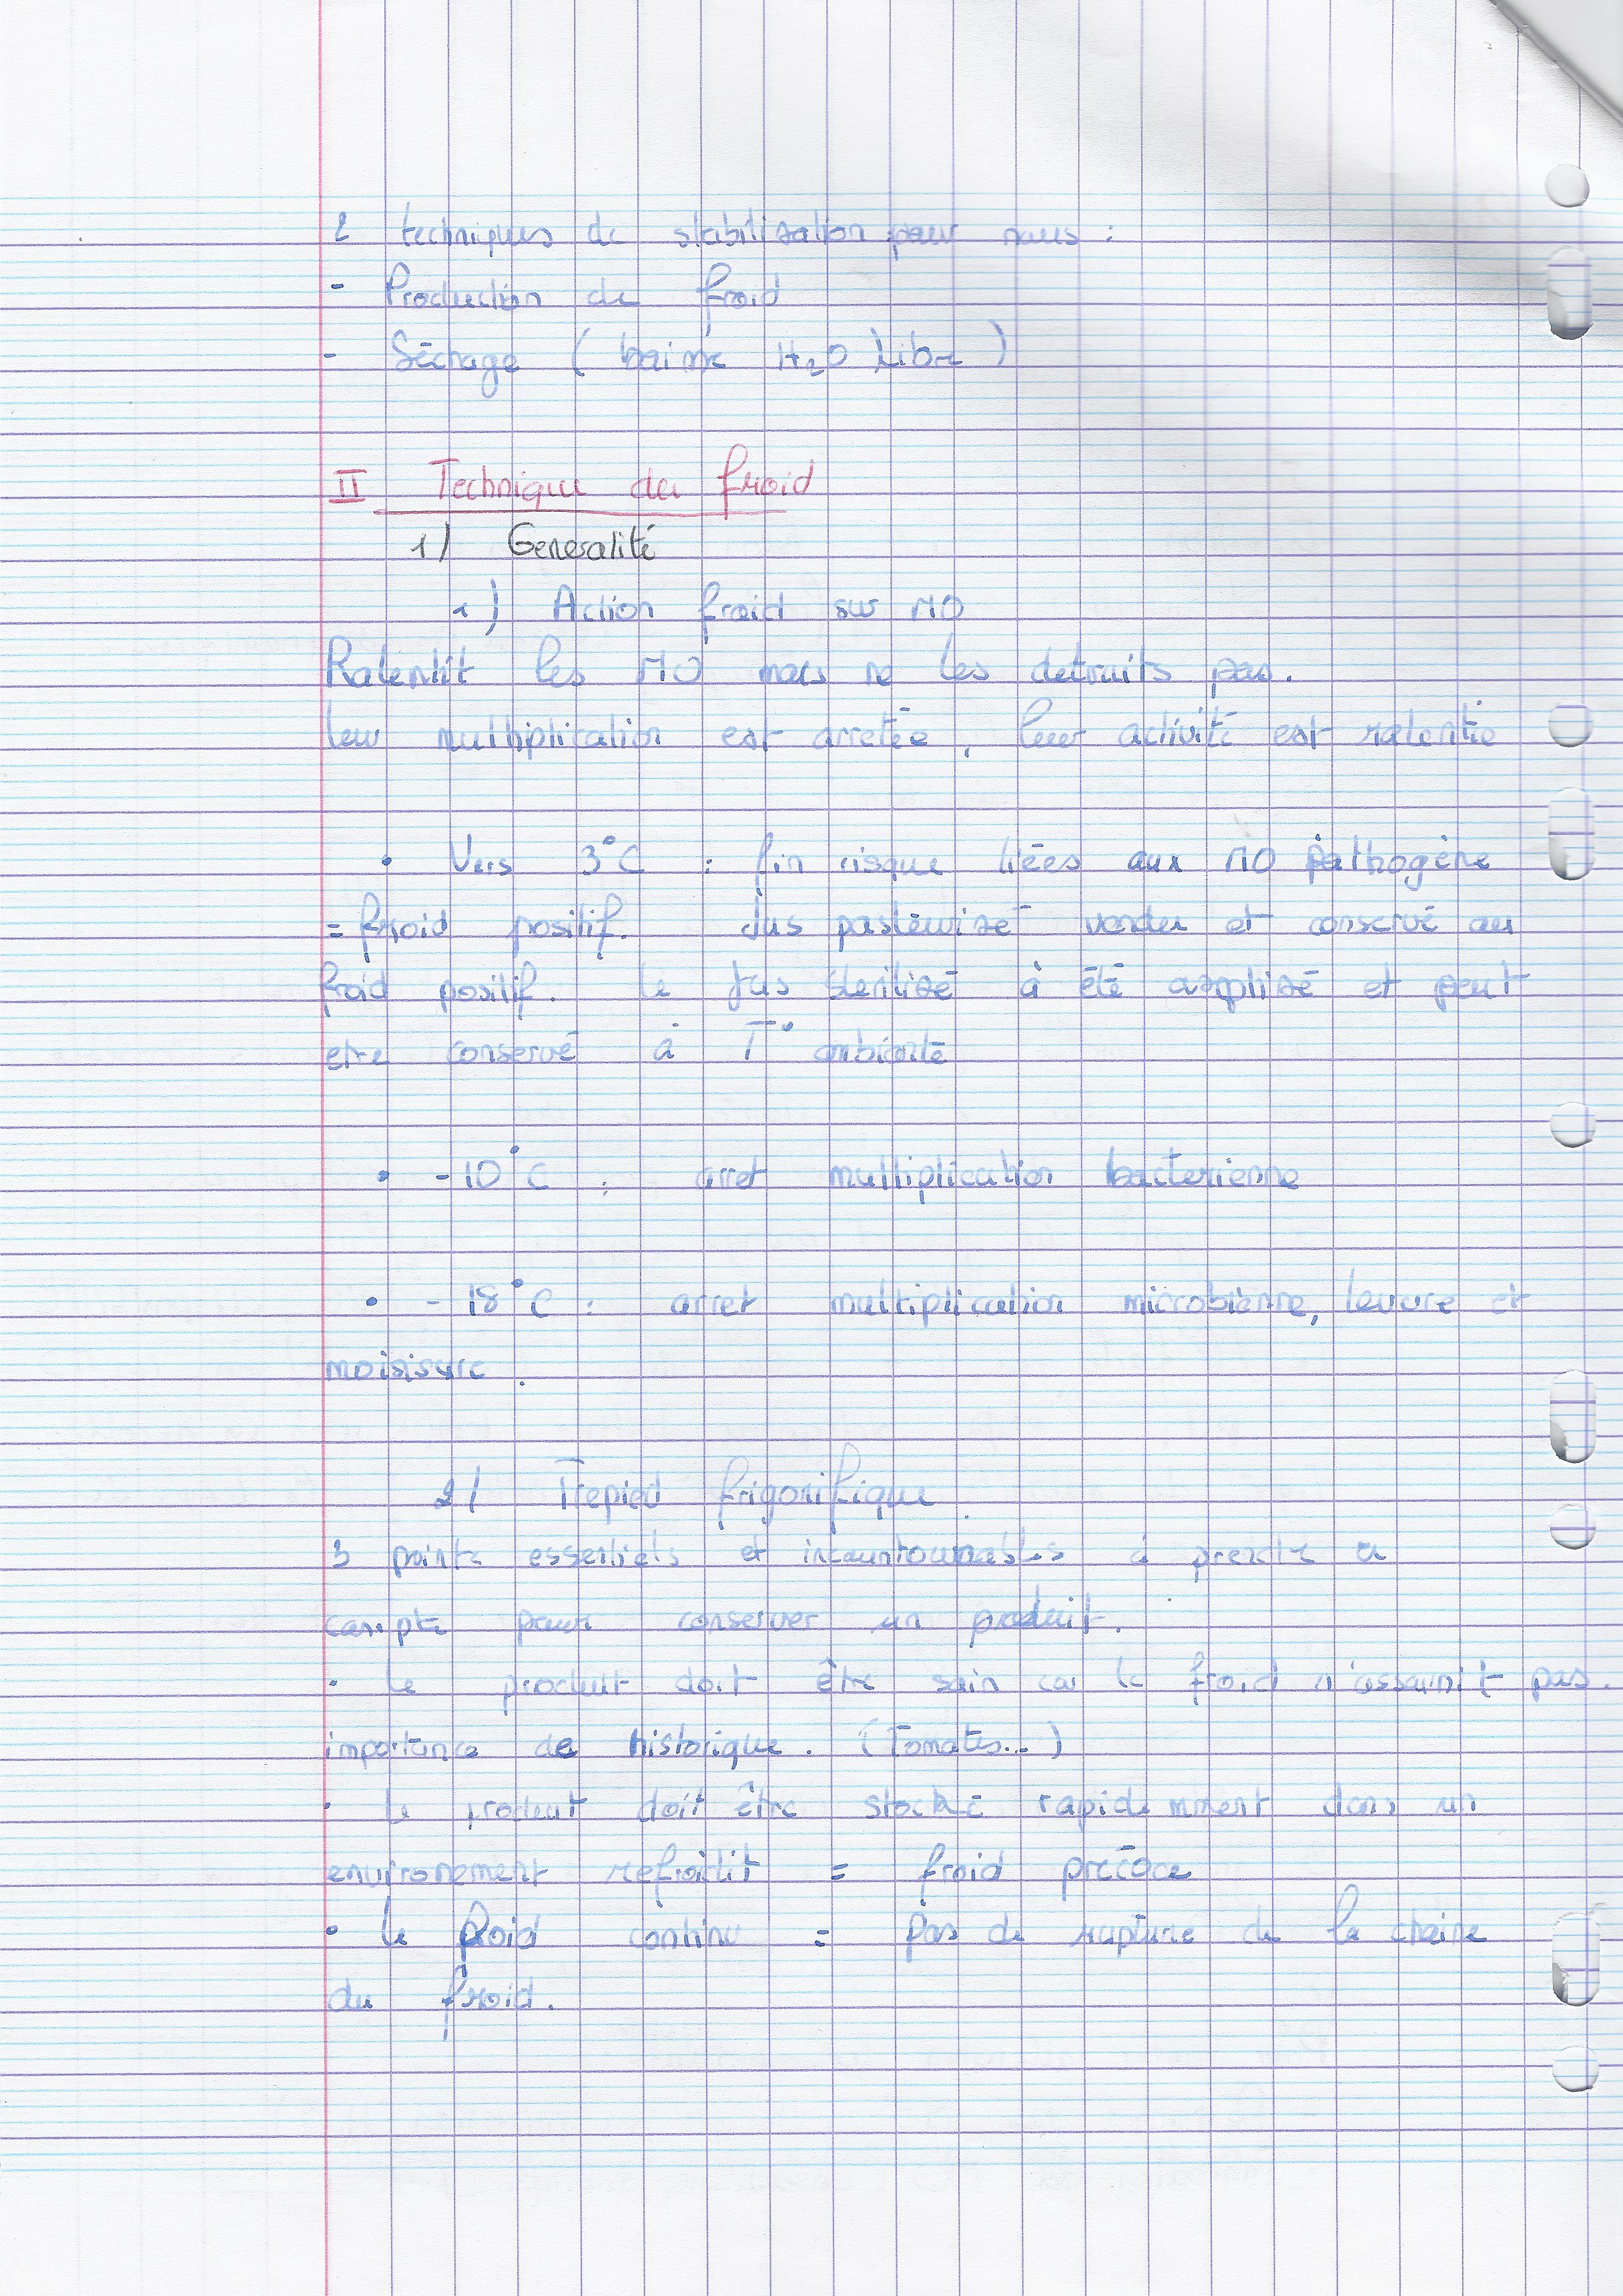 2 techniques de stabilisation pour nous :
- Production de froid
- Séchage ( baisse H2O Libre )
II Technique du froid
1) Generalité
1) Action froid sur MO
Ralentit les MO mais ne les detruits pas.
leur multiplication est arretée, leur activité est ralentie
• Vers 3°C : fin risque liées aux MO pathogène
= froid positif. Jus pasteurisé vendu et conservé au
froid positif. le jus sterilisé à été aseptisé et peut
etre conservé à T° ambiante
• -10°C : arret multiplication bacterienne
• -18°C : arret multiplication microbienne, levure et
moisisure.
2) Trepied frigorifique.
3 points essentiels et incountournables à prendre a
compte pour conserver un produit.
• le produit doit être sain car le froid n'assainit pas.
importance de historique. (Tomates...)
• le produit doit être stocké rapidemment dans un
environement refroidit = froid précoce
• le froid continu = pas de rupture de la chaine
du froid.